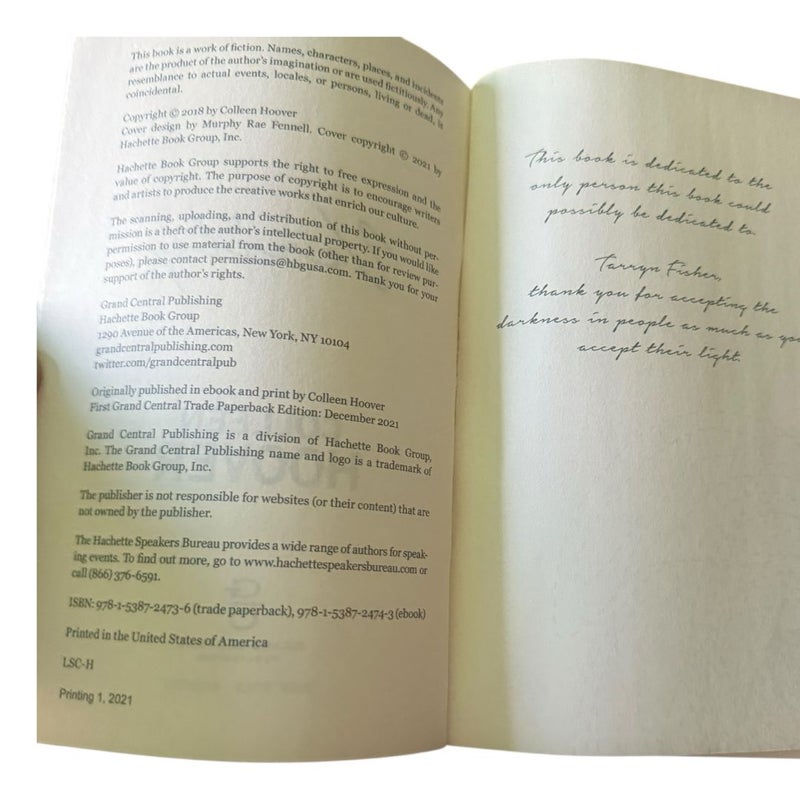 This book is a work of fiction. Names, characters, places, and incidents
are the product of the author's imagination or are used fictitiously. Any
resemblance to actual events, locales, or persons, living or dead, is
coincidental.
Copyright © 2018 by Colleen Hoover
Cover design by Murphy Rae Fennell. Cover copyright © 2021 by
Hachette Book Group, Inc.
Hachette Book Group supports the right to free expression and the
value of copyright. The purpose of copyright is to encourage writers
and artists to produce the creative works that enrich our culture.
The scanning, uploading, and distribution of this book without per-
mission is a theft of the author's intellectual property. If you would like
permission to use material from the book (other than for review pur-
poses), please contact permissions@hbgusa.com. Thank you for your
support of the author's rights.
Grand Central Publishing
Hachette Book Group
1290 Avenue of the Americas, New York, NY 10104
grandcentralpublishing.com
twitter.com/grandcentralpub
Originally published in ebook and print by Colleen Hoover
First Grand Central Trade Paperback Edition: December 2021
Grand Central Publishing is a division of Hachette Book Group,
Inc. The Grand Central Publishing name and logo is a trademark of
Hachette Book Group, Inc.
The publisher is not responsible for websites (or their content) that are
not owned by the publisher.
The Hachette Speakers Bureau provides a wide range of authors for speak-
ing events. To find out more, go to www.hachettespeakersbureau.com or
call (866) 376-6591.
ISBN: 978-1-5387-2473-6 (trade paperback), 978-1-5387-2474-3 (ebook)
Printed in the United States of America
LSC-H
Printing 1, 2021
This book is dedicated to the
only person this book could
possibly be dedicated to.
Tarryn Fisher,
thank you for accepting the
darkness in people as much as you
accept their light.